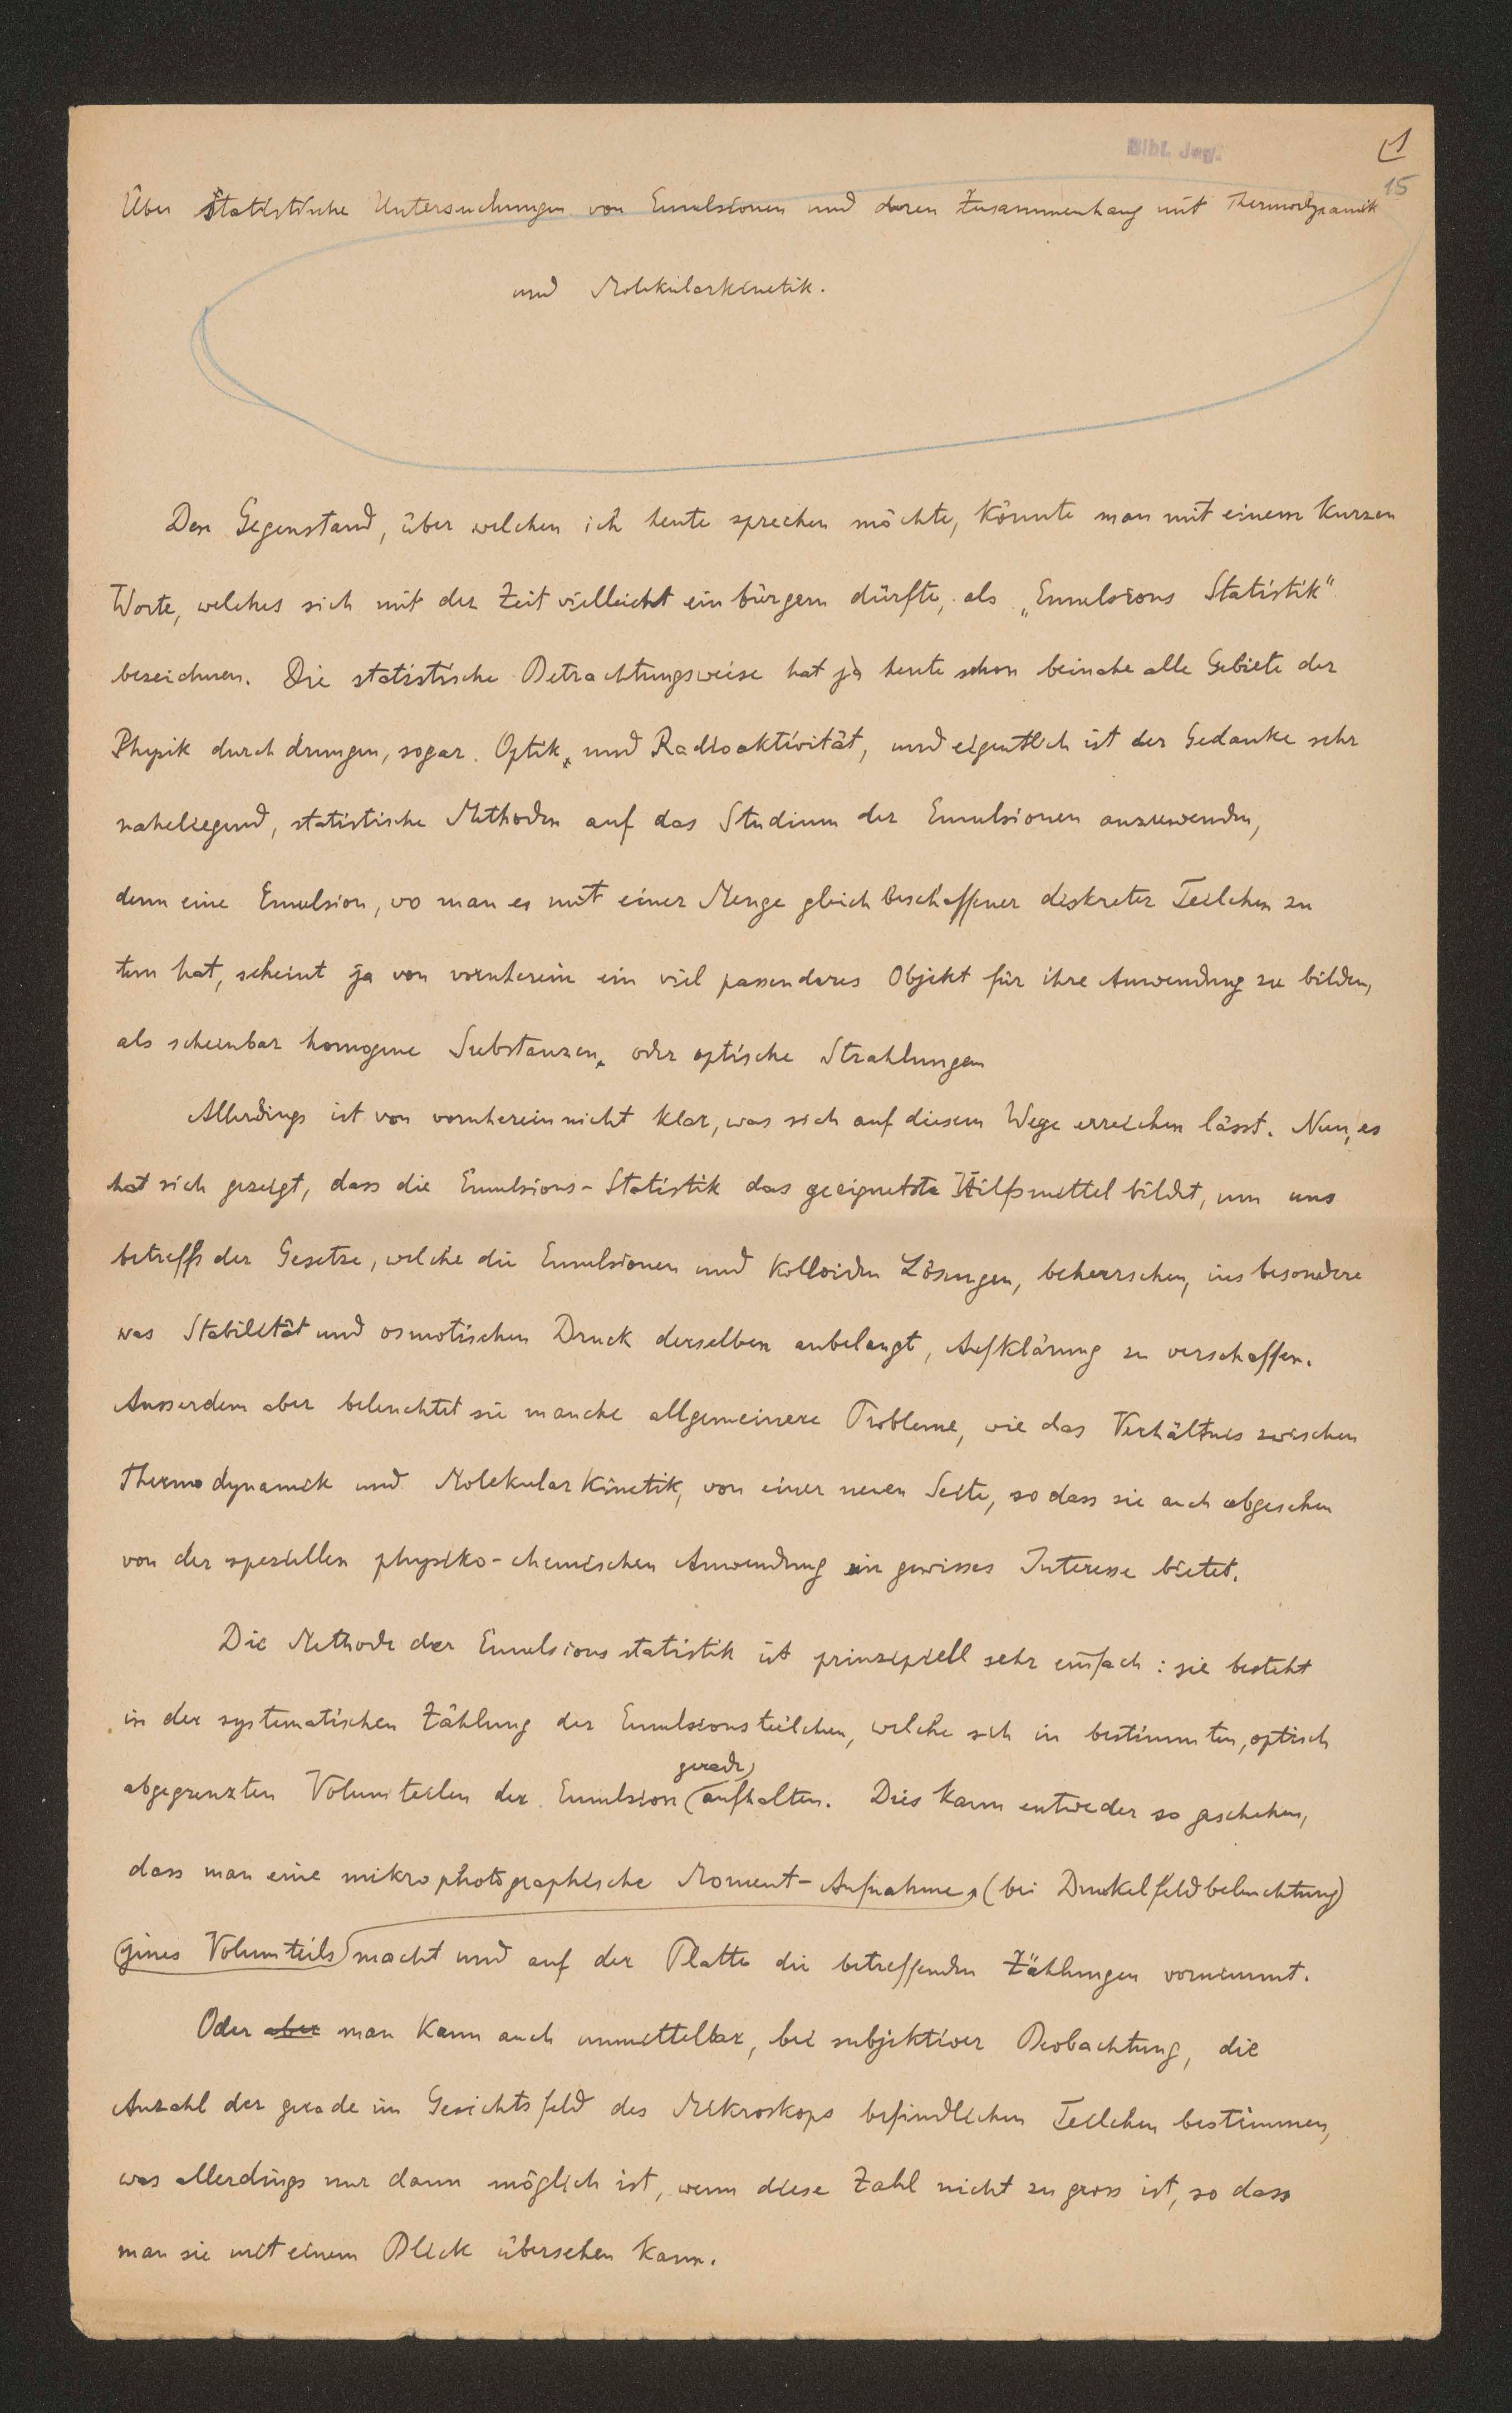 Bibl. Jag.
1
15
Über statistische Untersuchungen von Emulsionen und deren Zusammenhang mit Thermodynamik
und Molekularkinetik.
Den Gegenstand, über welchen ich heute sprechen möchte, könnte man mit einem kurzen
Worte, welches sich mit der Zeit vielleicht einbürgern dürfte, als „Emulsions Statistik"
bezeichnen. Die statistische Betrachtungsweise hat ja heute schon beinahe alle Gebiete der
Physik durchdrungen, sogar Optik und Radioaktivität, und eigentlich ist der Gedanke sehr
naheliegend, statistische Methoden auf das Studium der Emulsionen anzuwenden,
denn eine Emulsion, wo man es mit einer Menge gleich beschaffener diskreter Teilchen zu
tun hat, scheint ja von vornherein ein viel passenderes Objekt für ihre Anwendung zu bilden,
als scheinbar homogene Substanzen, oder optische Strahlungen
Allerdings ist von vornherein nicht klar, was sich auf diesem Wege erreichen lässt. Nun, es
hat sich gezeigt, dass die Emulsions-Statistik das geeignetste Hilfsmittel bildet, um uns
betreffs der Gesetze, welche die Emulsionen und kolloiden Lösungen, beherrschen, insbesondere
was Stabilität und osmotischen Druck derselben anbelangt, Aufklärung zu verschaffen.
Ausserdem aber beleuchtet sie manche allgemeinere Probleme, wie das Verhältnis zwischen
Thermodynamik und Molekularkinetik, von einer neuen Seite, so dass sie auch abgesehen
von der speziellen physiko-chemischen Anwendung ein gewisses Interesse bietet.
Die Methode der Emulsionsstatistik ist prinzipiell sehr einfach: sie besteht
in der systematischen Zählung der Emulsionsteilchen, welche sich in bestimmten, optisch
gerade
abgegrenzten Volumteilen der Emulsion aufhalten. Dies kann entweder so geschehen,
dass man eine mikrophotographische Moment-Aufnahme, (bei Dunkelfeldbeleuchtung)
eines Volumteils macht und auf der Platte die betreffenden Zählungen vornimmt.
Oder aber man kann auch unmittelbar, bei subjektiver Beobachtung, die
Anzahl der gerade im Gesichtsfeld des Mikroskops befindlichen Teilchen bestimmen,
was allerdings nur dann möglich ist, wenn diese Zahl nicht zu gross ist, so dass
man sie mit einem Blick übersehen kann.